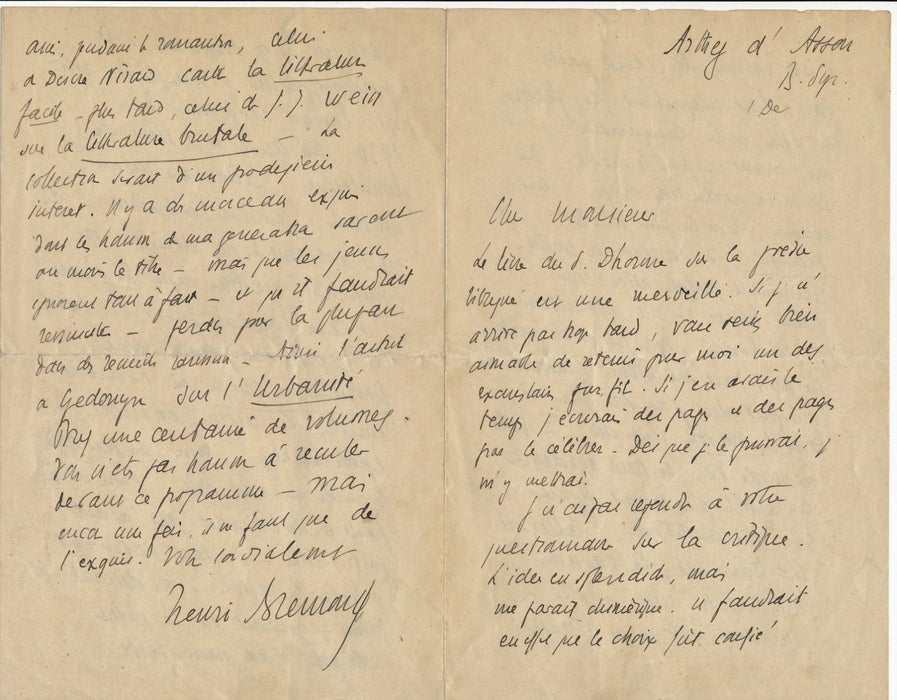 Arthez d' Asson
B. Pyr.
1 De
Cher Monsieur
Le livre du P. Dhorme sur la poésie
biblique est une merveille. Si je n'
arrive pas trop tard, vous seriez bien
aimable de retenir pour moi un des
exemplaires pur fil. Si j'en avais le
temps j'écrirais des pages et des pages
pour le célébrer. Dès que je le pourrai, j
m'y mettrai.
Je n'ai pas répondu à votre
questionnaire sur la critique.
L'idée en splendide, mais
me parait chimérique. Il faudrait
en effet que le choix fût confié
ainsi, pendant le romantisme, celui
de Désiré Nisard contre la littérature
facile - plus tard, celui de J. J. Weiss
sur la littérature brutale - La
collection serait d'un prodigieux
interet. Il y a des morceaux exquis
dont les hommes de ma generation savent
au moins le titre - mais que les jeunes
ignorent tout à fait - et qu'il faudrait
ressusciter - perdus pour la plupart
dans des recueils
Ainsi l'
de Gedoyn sur l'Urbanité
une centaine de volumes.
Vous n'êtes pas homme à reculer
devant ce programme - mais
encore une fois, il ne faut que de
l'exquis. Votre cordialement
Henri Bremond